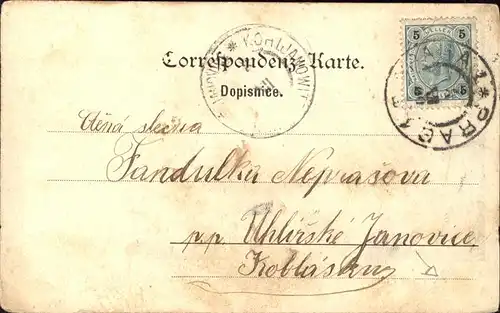 5 5
5 5
KOHLJANOWITZ
Correspondenz-Karte.
Dopisnice.
PRAG 1
Ctěná slečna
Fandulka Neprašova
p.p. Uhlířské Janovice